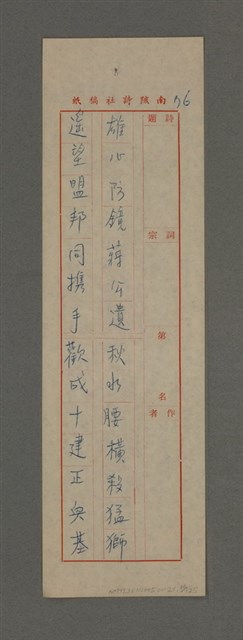 南陔詩社稿紙
76
詩題
詞宗
第 名
作者
雄心防鏡蔣公遺秋水腰橫殺猛獅
遙望盟邦同携手歡成十建正奠基